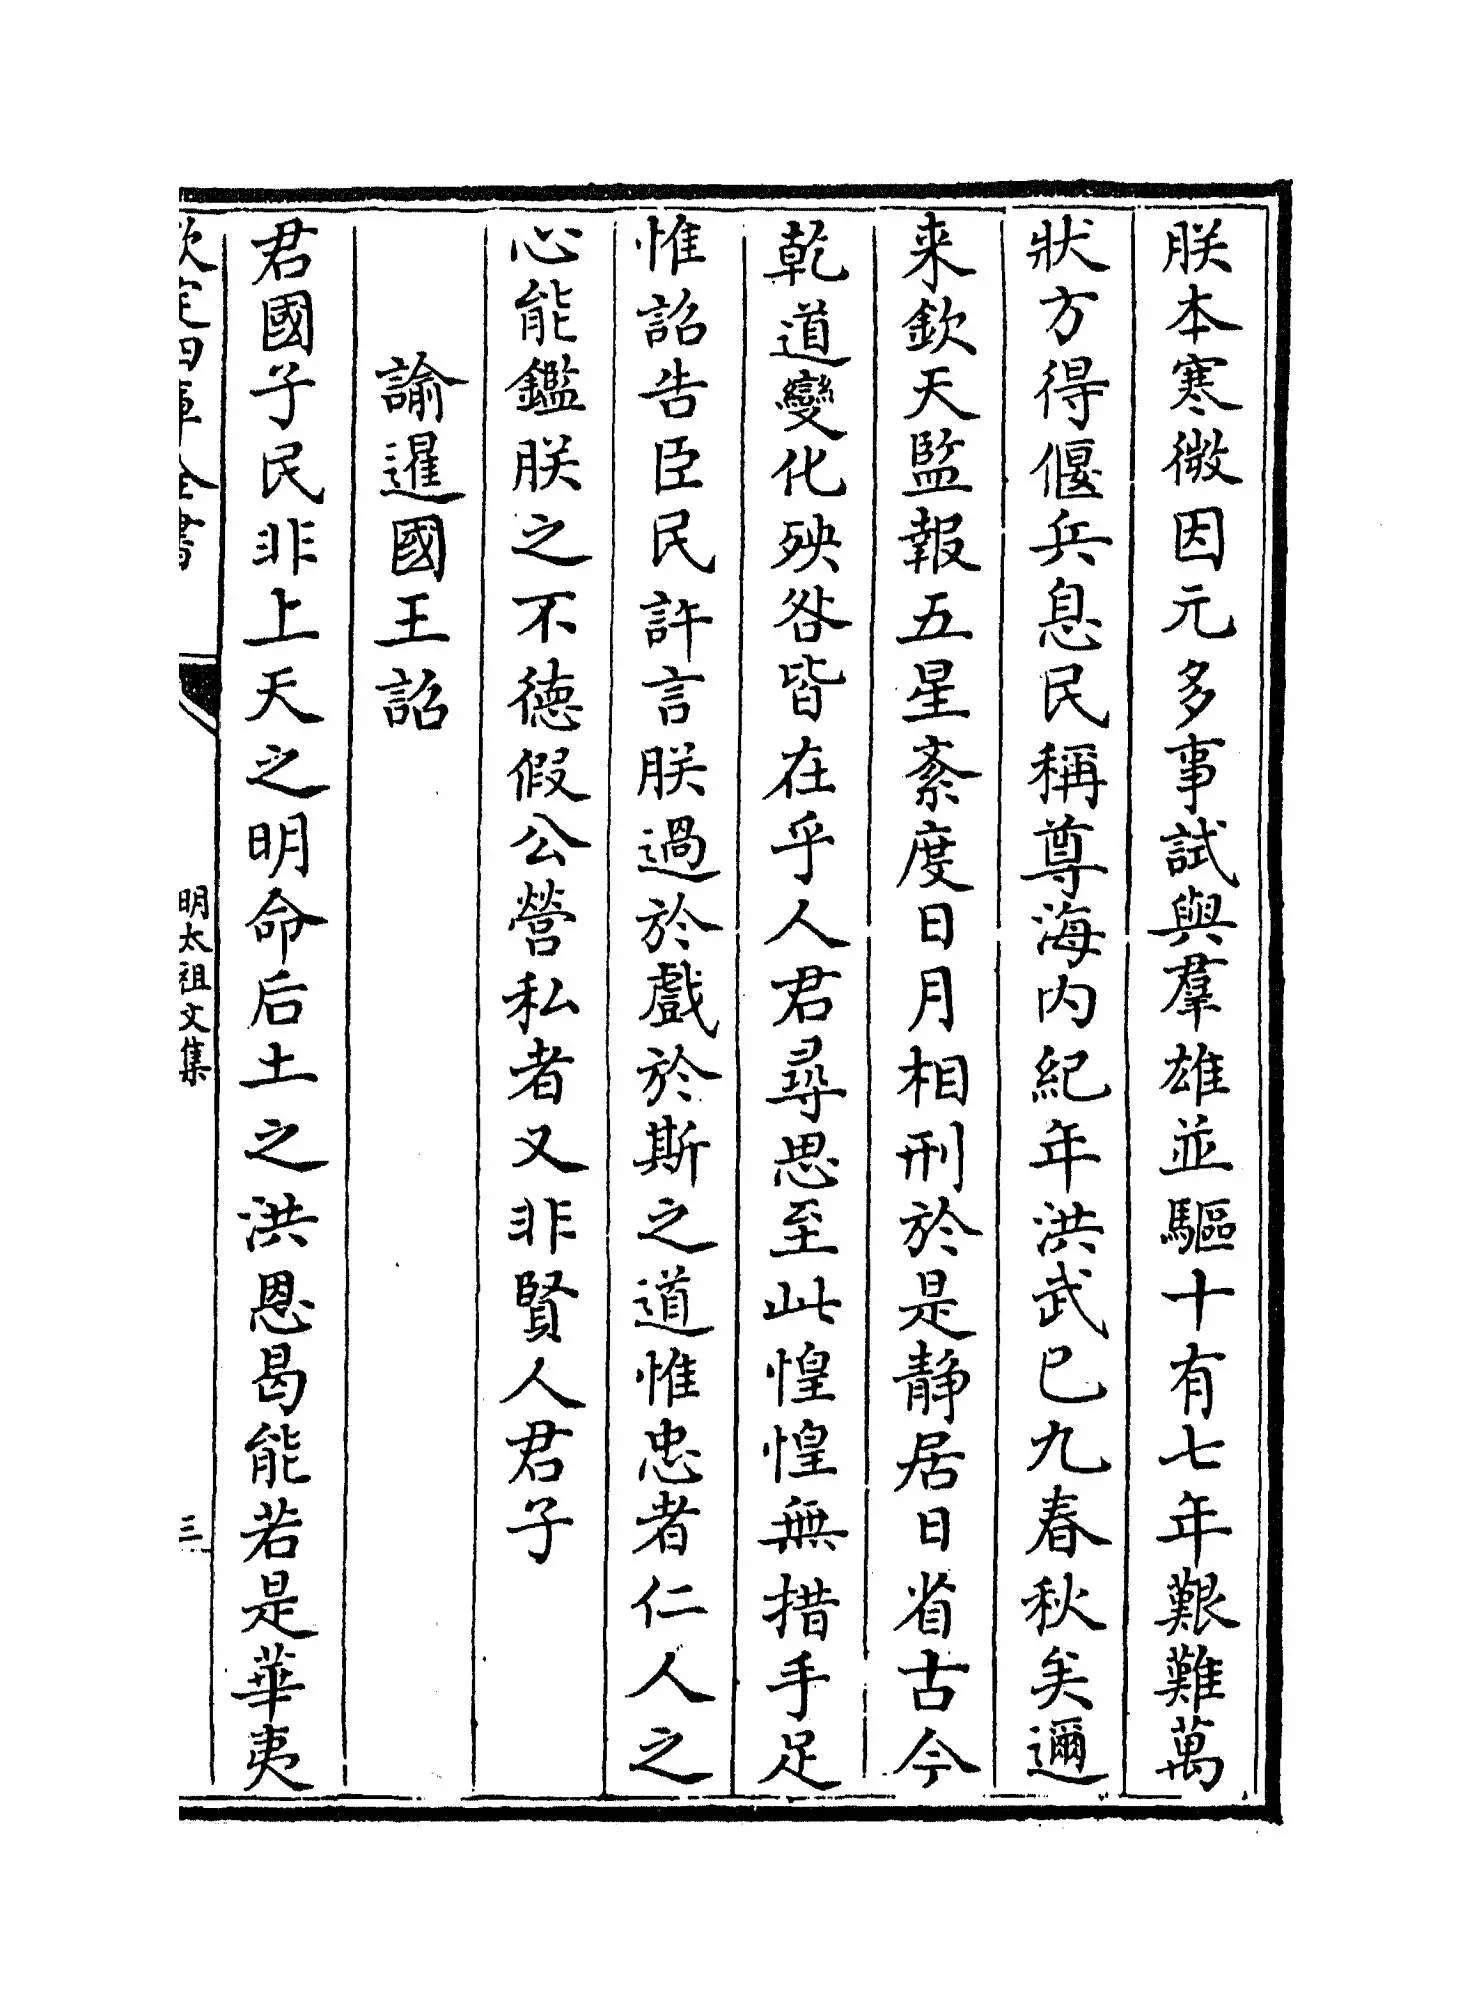 朕本寒微因元多事試與羣雄並驅十有七年艱難萬
狀方得偃兵息民稱尊海内紀年洪武已九春秋矣邇
来欽天監報五星紊度日月相刑於是静居日省古今
乾道變化殃咎皆在乎人君尋思至此惶惶無措手足
惟詔告臣民許言朕過於戲於斯之道惟忠者仁人之
心能鑑朕之不德假公營私者又非賢人君子
諭暹國王詔
君國子民非上天之明命后土之洪恩曷能若是華夷
欽定四庫全書
明太祖文集
三